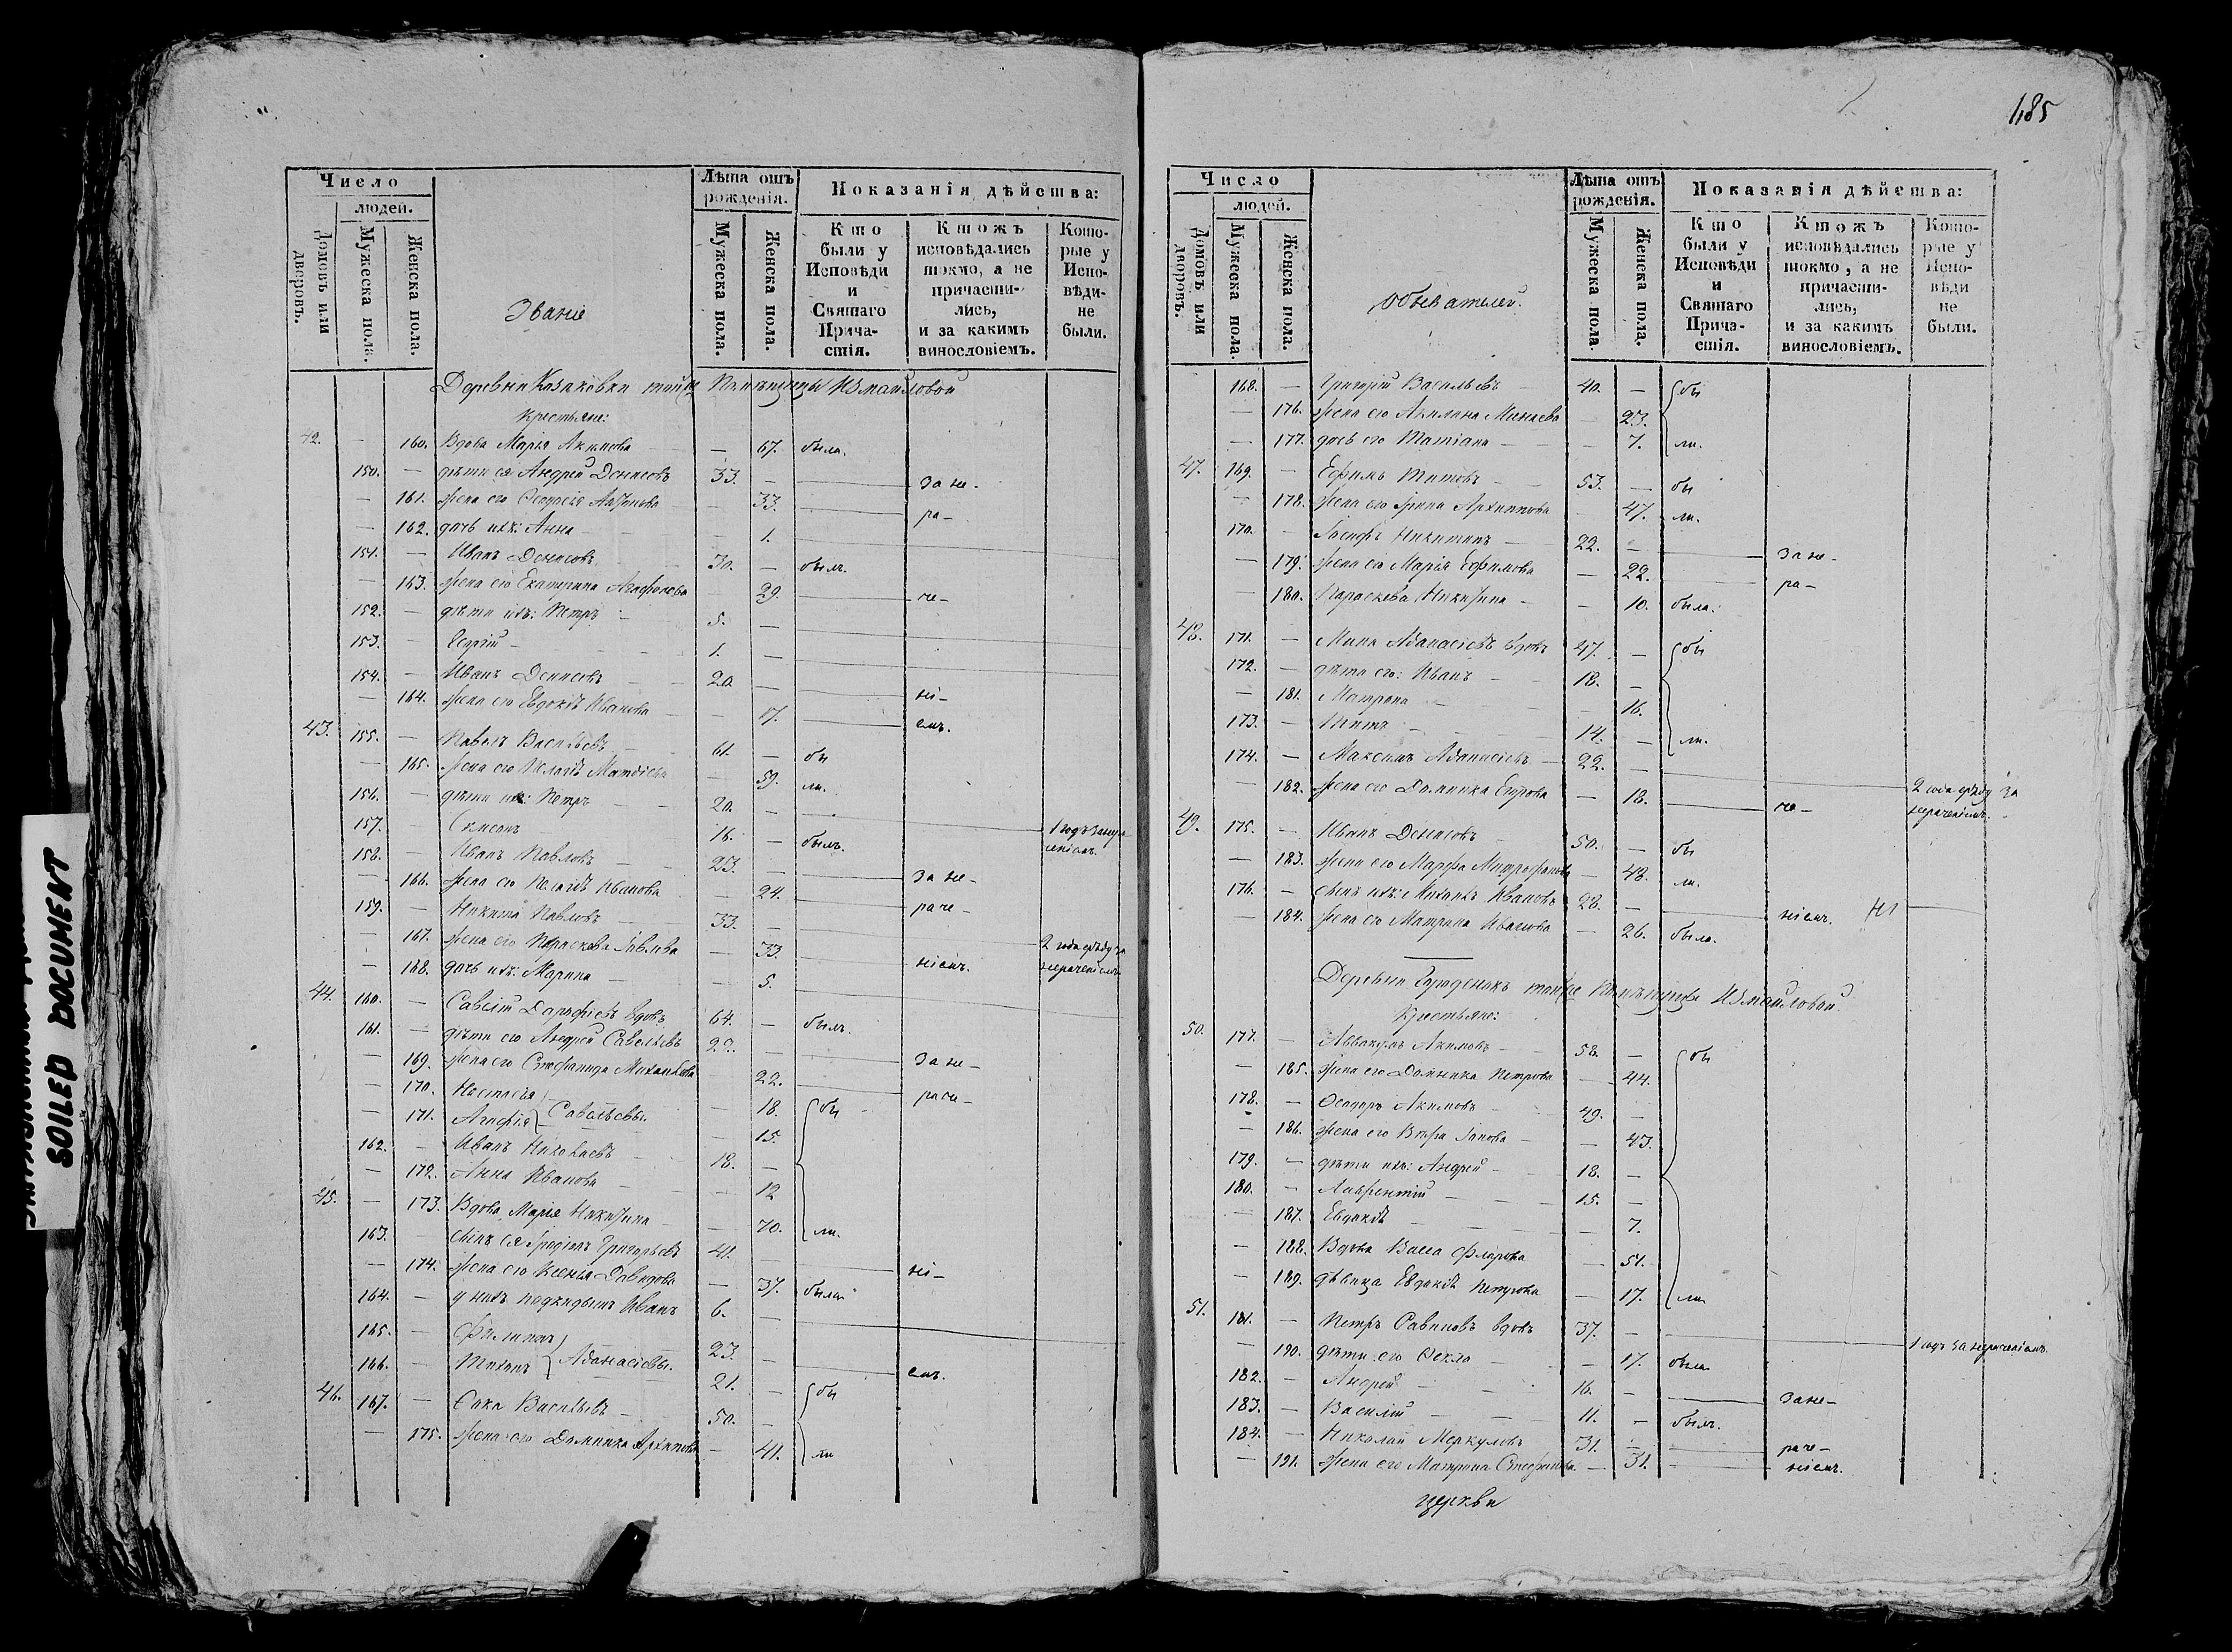 185
Число
людей.
Домовъ или дворовъ.
Мужеска пола.
Женска пола.
Званіе
Лѣта отъ рожденія.
Мужеска пола.
Женска пола.
Показанія дѣйства:
Кто были у Исповѣди и Святаго Прича-стія.
Ктожъ исповѣдались токмо, а не причасти-лись, и за какимъ винословіемъ.
Кото-рые у Испо-вѣди-не были.
Деревни Козаковки той же Помѣщицы Измайловой
Крестьяне:
42. — 160. Вдова Марья Акимова — 67. была.
150. — дѣти ея Андрей Денисовъ 33. — за не-
— 161. жена его Ѳеодосія — 33. ра-
— 162. дочь ихъ: Анна — 1.
151. — Иванъ Денисовъ 30. — былъ.
— 163. жена его Екатерина Агафонова — 29. че-
152. — дѣти ихъ: Петръ 5. —
153. — 1. —
154. — Иванъ Денисовъ 20. — ні-
— 164. жена его Евдокія Иванова — 17. емъ.
43. 155. — Павелъ Васильевъ 61. — бы
— 165. жена его Пелагія — 59. ли.
156. — дѣти ихъ: Петръ 20. — 1 годъ за нера ченіемъ.
157. — Симеонъ 16. — былъ.
158. — Иванъ Павловъ 23. — за не-
— 166. жена его Пелагія Иванова — 24. раче-
159. — Никита Павловъ 33. — 2 года сряду за нераченіемъ
— 167. жена его Параскева — 33. ніемъ.
— 168. дочь ихъ: Марина — 5.
44. 160. — Савелій вдовъ 64. — былъ.
161. — дѣти его Андрей Савельевъ 22. — за не-
— 169. жена его Стефанида Михайлова — 22. раче-
— 170. Настасія — 18. бы
— 171. Агафія Савельевы. — 15.
162. — Иванъ Николаевъ 18. —
— 172. Анна Иванова — 12
45. — 173. Вдова Марія Никитина — 70. ли.
163. — сынъ ея Григорьевъ 41. — ні-
— 174. жена его Ксенія Давидова — 37. была
164. — у нихъ подкидышъ Иванъ 6. —
165. — Филиппъ 23. —
166. — Тихонъ Аѳанасіевы. 21. — емъ.
46. 167. — Сака Васильевъ 50. — бы
— 175. жена его Домника Архипова — 41. ли
Число
людей.
Домовъ или дворовъ.
Мужеска пола.
Женска пола.
Обывателей.
Лѣта отъ рожденія.
Мужеска пола.
Женска пола.
Показанія дѣйства:
Кто были у Исповѣди и Святаго Прича-стія.
Ктожъ исповѣдались токмо, а не причасти-лись, и за какимъ винословіемъ.
Кото-рые у Испо-вѣди не были.
168. — Григорій Васильевъ 40. — бы
— 176. жена его Акилина Минаева — 23.
— 177. дочь его Татіана — 7. ли.
47. 169. — Ефимъ Титовъ 53. — бы
— 178. жена его Ірина Архиппова — 47. ли.
170. — Іосифъ Никитинъ 22. — за не-
— 179. жена его Марія Ефимова — 22. ра-
— 180. Параскева Никитина — 10. была.
48. 171. — Мина Аѳанасіевъ вдовъ 47. — бы
172. — дѣти его: Иванъ 18. —
— 181. Матрона — 16.
173. — Титъ 14. — ли.
174. — Максимъ Аѳанасіевъ 22. — 2 года сряду за нераченіемъ.
— 182. жена его Домника Егорова — 18. че-
49. 175. — Иванъ Денисовъ 50. — бы
— 183. жена его Марфа Митрофанова — 48. ли.
176. — сынъ ихъ: Михаилъ Ивановъ 28. — ніемъ.
— 184. жена его Матрона Иванова — 26. была.
Деревни той же Помѣщицы Измайловой
Крестьяне:
50. 177. — Аввакумъ Акимовъ 58. — бы
— 185. жена его Домника Петрова — 44.
178. — Ѳеодоръ Акимовъ 49. —
— 186. жена его Вѣра — 43.
179. — дѣти ихъ: Андрей 18. —
180. — Лаврентій 15. —
— 187. Евдокія — 7.
— 188. Вдова Васса Флорова — 51.
— 189. дѣвица Евдокія Петрова — 17. ли
51. 181. — Петръ Савиновъ вдовъ 37. — 1 годъ за нераченіемъ
— 190. дѣти его Ѳекла — 17. была
182. — Андрей 16. — за не-
183. — Василій 11. — былъ.
184. — Николай Меркуловъ 31. — раче-
— 191. жена его Матрона Стефанова — 31. ніемъ.
церкви
SOILED DOCUMENT